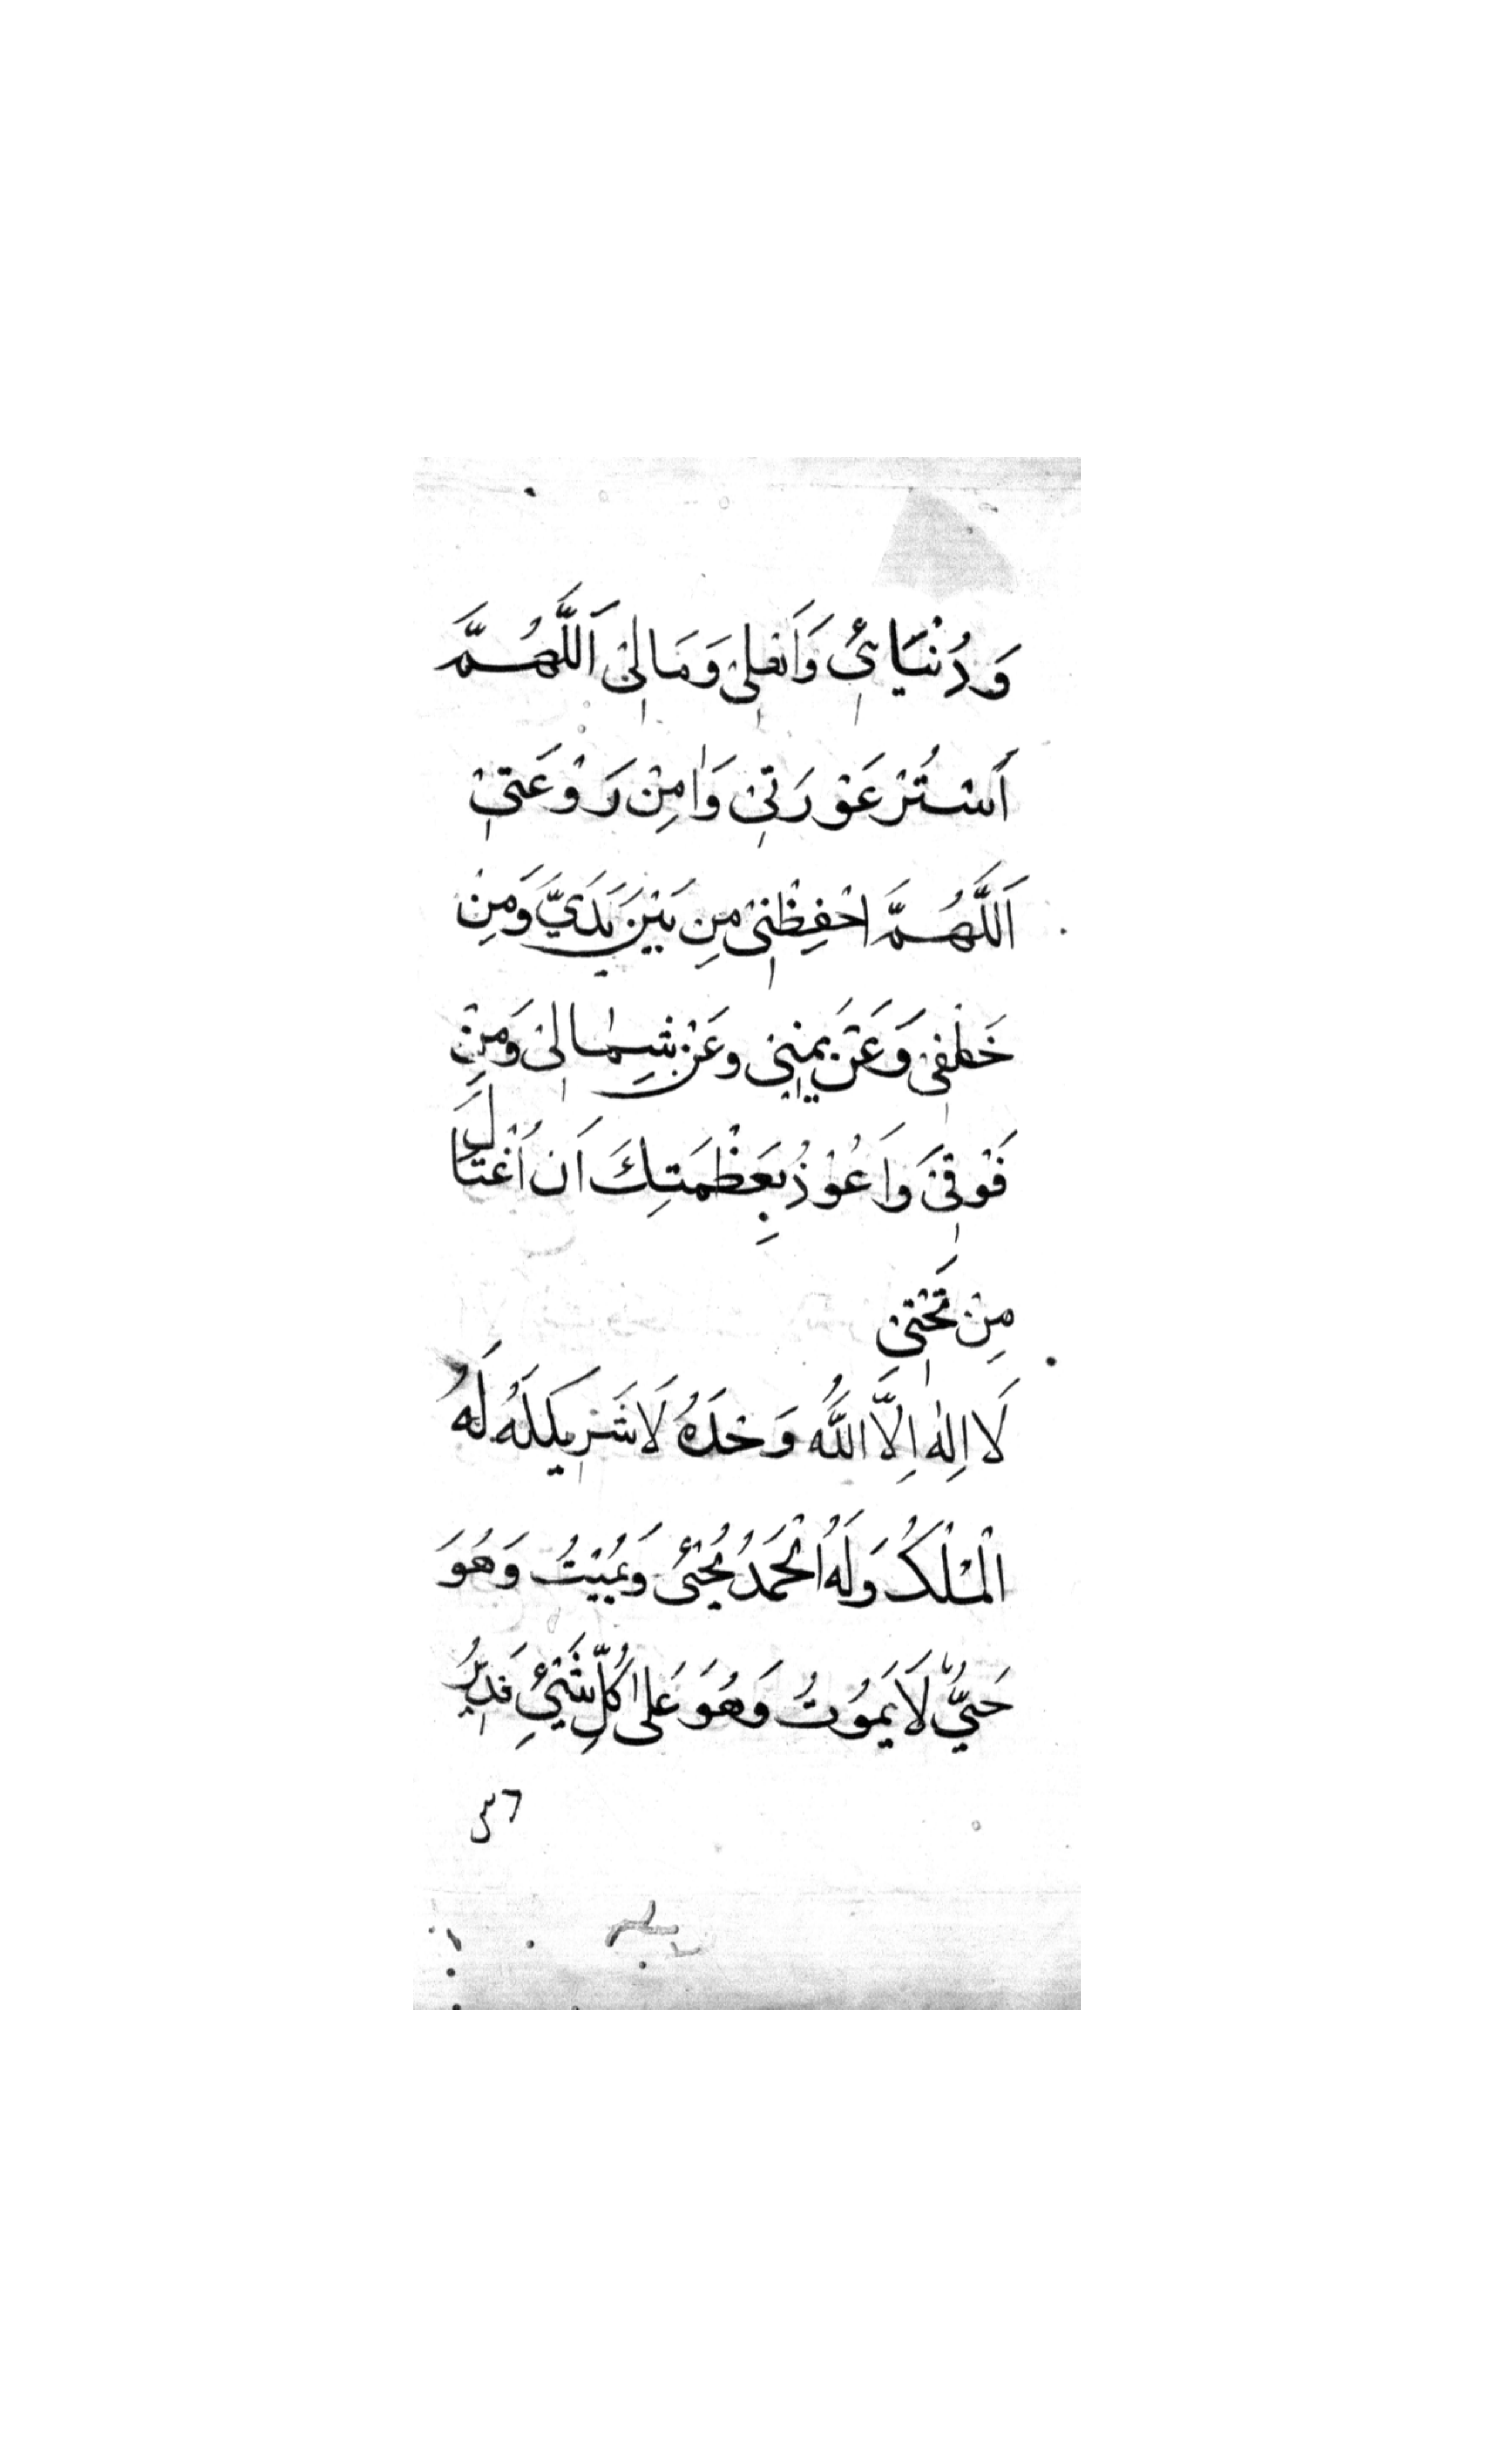 وَدُنْيَائِ وَاَهْلِيْ وَمَالِيْ اَللّٰهُمَّ
اَسْتُرْ عَوْرَتِيْ وَاٰمِنْ رَوْعَتِيْ
اَللّٰهُمَّ احْفِظْنِيْ مِنِ بَيْنَ يَدَيَّ وَمِنِ
خَلْفِيْ وَعَنْ يَمِيْنِيْ وَعَنْ شِمَالِيْ وَمِنِ
فَوْقِيْ وَاَعُوْذُ بِعَظْمَتِكَ اَن اُغْتَالَ
مِنْ تَحْتِيْ
لَا اِلٰهَ اِلَّا اللهُ وَحْدَهُ لَا شَرِيْكَ لَهُ لَهُ
الْمُلْكُ وَلَهُ الْحَمْدُ يُحْيِىْ وَيُمِيْتُ وَهُوَ
حَيٌّ لَا يَمُوْتُ وَهُوَ عَلٰى كُلِّ شَيْئٍ قَدِيْرٌ